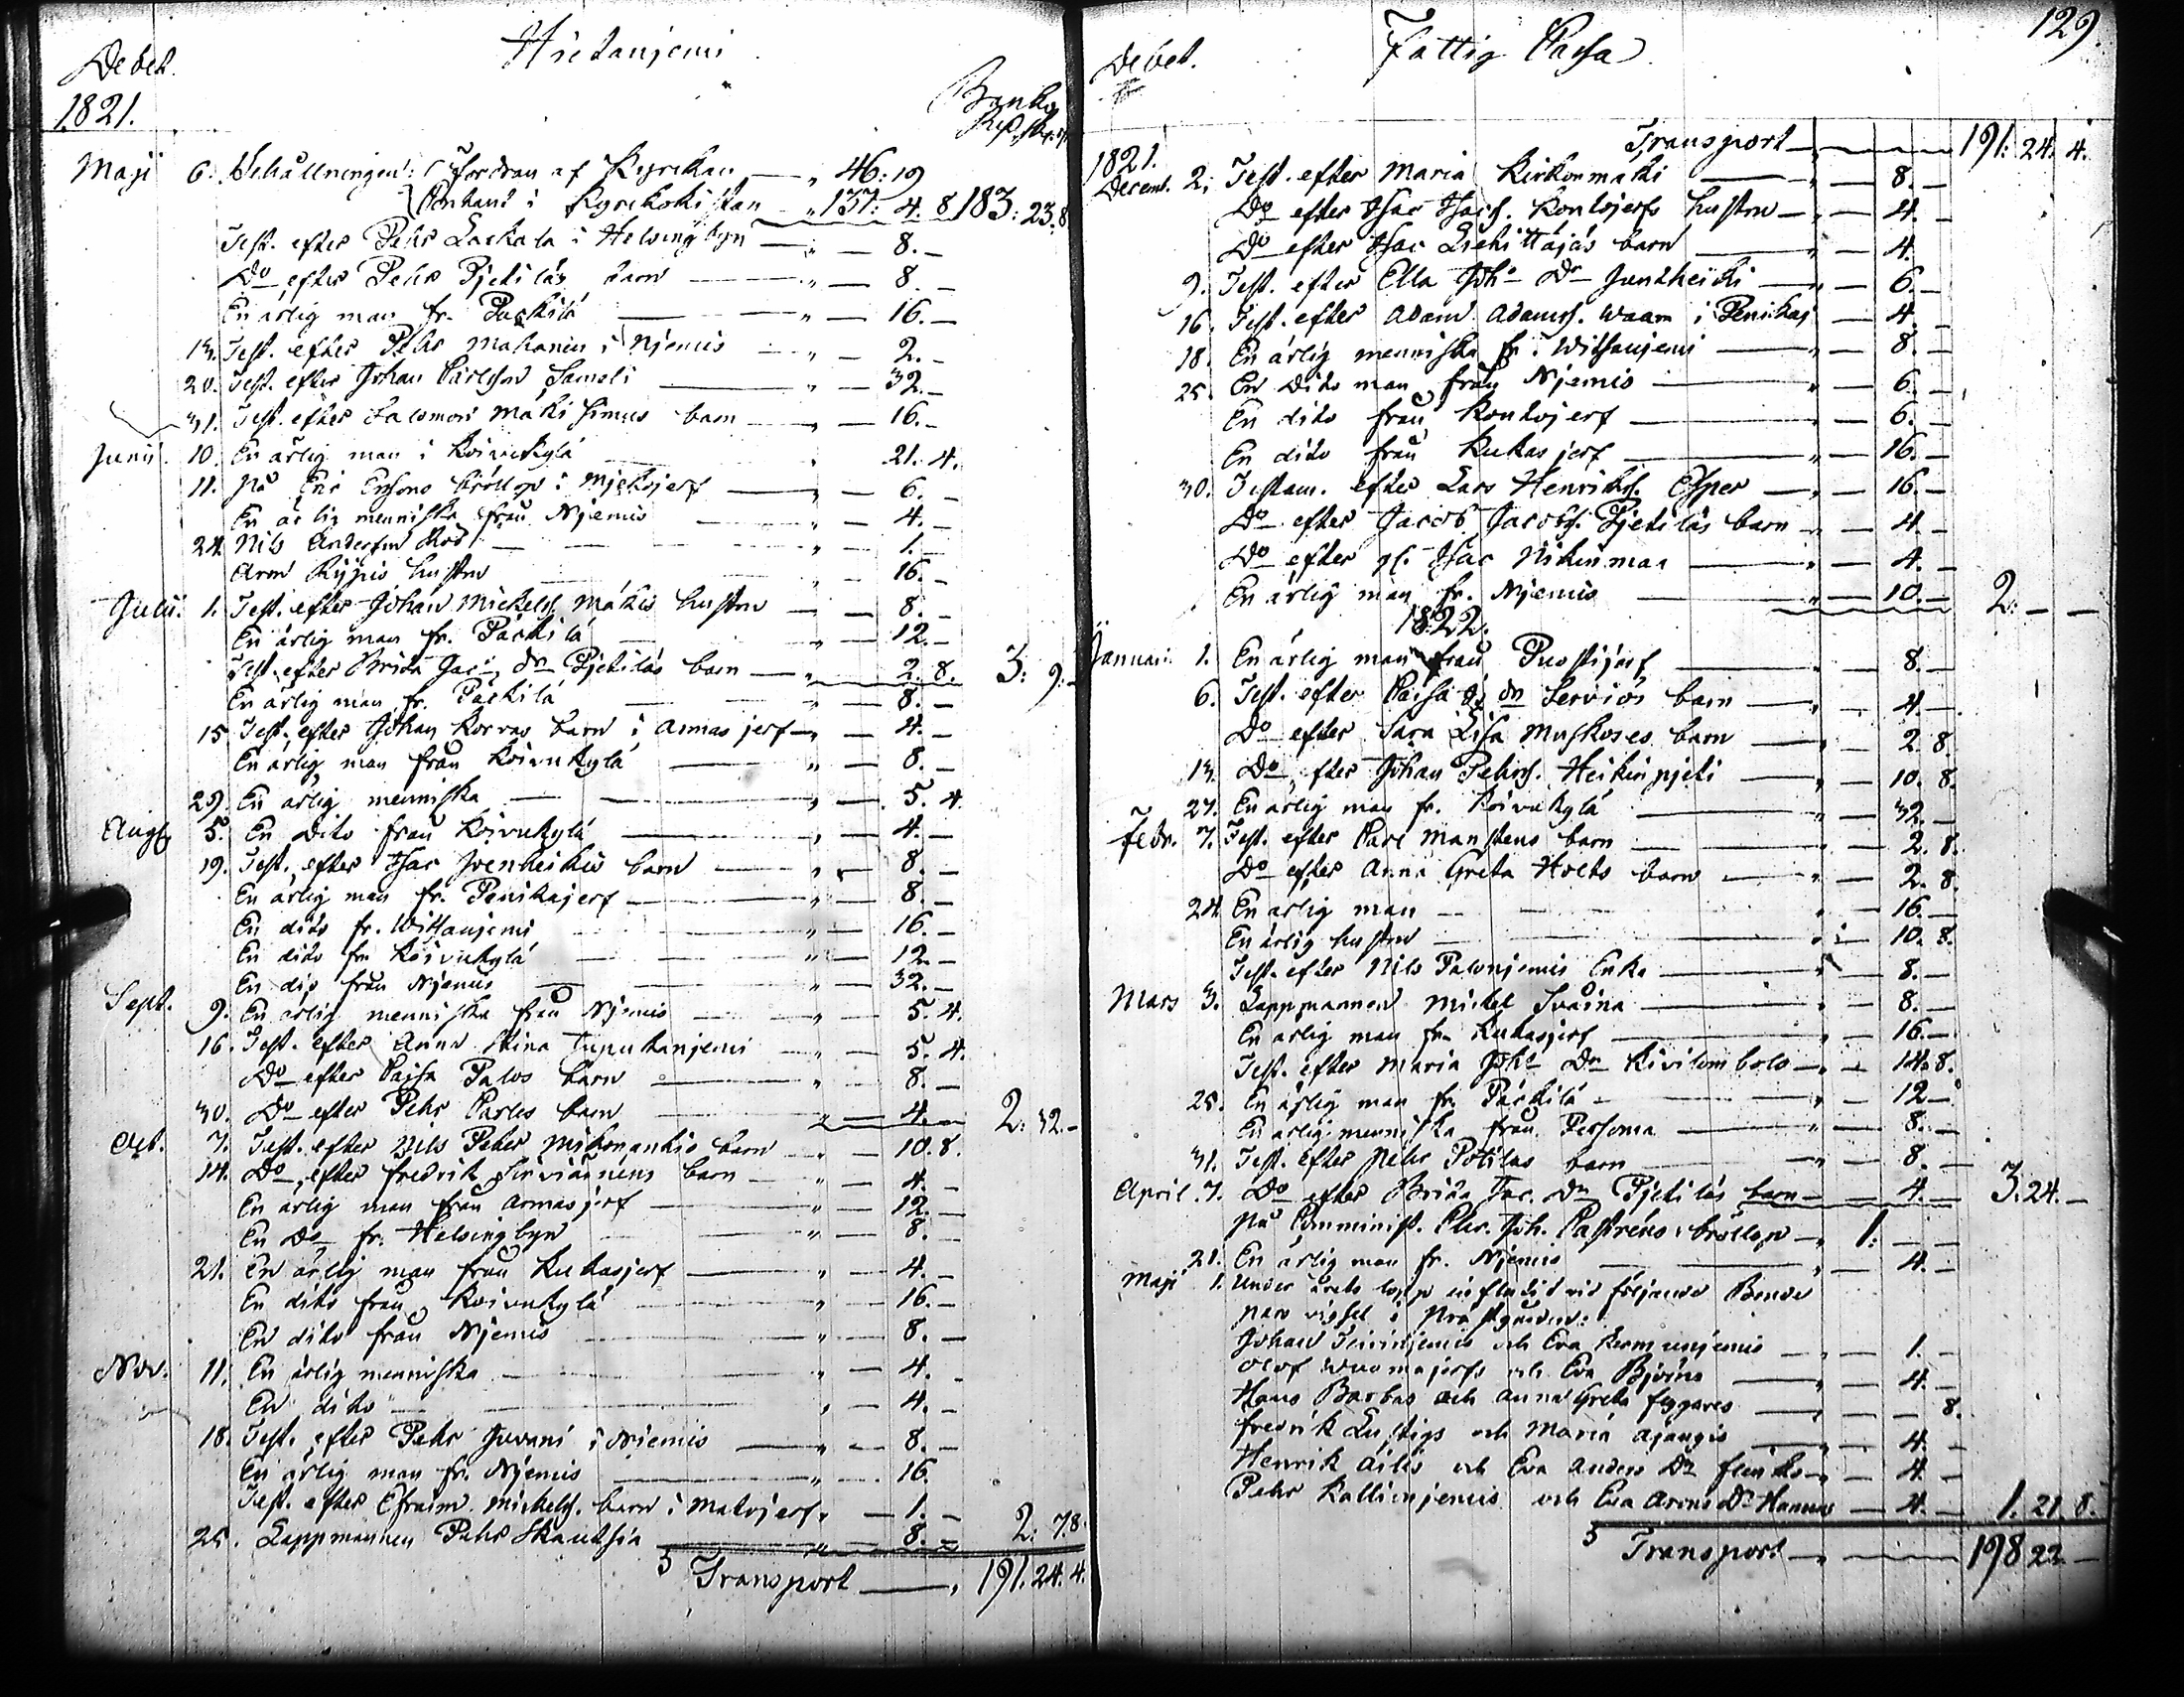 Hietanjemi
Debet.
1821.
Banko
Rd. sk. r.
Maji 6. Behållningen: Fordran af Kyrckan — 46: 19
Contant i Kyrckokistan — 137: 4. 8 183: 23. 8
Test. efter Pehr Lackala i Helsingbyn — 8. —
Do efter Pehr Pjetiläs barn — 8. —
En ärlig man fr. Päckilä — 16. —
13. Test. efter Pehr Mahanen i Njemis — 2. —
20. Test. efter Johan Carlsson Sameli — 32. —
31. Test. efter Salomon Mäki Simus barn — 16. —
Junii. 10. En ärlig man i Koivukylä 21. 4.
11. På Eric Ersons bröllop i Mjekojerf — 6. —
En ärlig menniska från Njemis — 4. —
24. Nils Anderson Röd — 1. —
Aron Rypis hustru 16. —
Julii. 1. Test. efter Johan Mickelss. Mäkis hustru — 8. —
En ärlig man fr. Päckilä — 12. —
Test. efter Brita Jac. dr Pjetiläs barn — 2. 8. 3: 9: —
En ärlig man fr. Päckilä — 8. —
15 Test. efter Johan Korvas barn i Armasjerf — 4. —
En ärlig man från Koivukylä — 8. —
29. En ärlig menniska — 5. 4.
Aug. 5. En Dito från Koivukylä — 4. —
19. Test. efter Isac Ivenheikis barn — 8. —
En ärlig man fr. Penikajerf — 8. —
En dito fr. Witsanjemi — 16. —
En dito fr. Koivukylä — 12. —
En dio från Njemis — 32. —
Sept. 9. En ärlig menniska från Njemis — 5. 4.
16. Test. efter Anna Stina Tupukanjemi — 5. 4.
Do efter Cajsa Palos barn — 8. —
30. Do efter Pehr Carlss barn — 4. — 2: 32. —
Oct. 7. Test. efter Nils Peter Mikonankis barn — 10. 8.
14. Do efter Fredrik Serviäinens barn — 4. —
En ärlig man från Armasjerf — 12. —
En Do fr. Helsingbyn — 8. —
21. En ärlig man från Kukasjerf — 4. —
En dito från Koivukylä — 16. —
En dito från Njemis — 8. —
Nov. 11. En ärlig menniska — 4. —
En dito — 4. —
18. Test. efter Pehr Juvani i Niemis — 8. —
En ärlig man fr. Njemis — 16.
Test. efter Efraim Mickelss. barn i Matojerf — 1. —
25. Lappmannen Pehr Skautsia 8. — 2: 7. 8.
Transport — 191. 24. 4.
129.
Fattig Cassa
Debet.
Transport — 191: 24. 4.
1821.
Decemb. 2. Test. efter Maria Kirkonmäki — 8. —
Do efter Isac Isacs. Kontojerfs hustru — 4. —
Do efter Isac Liehittäjäs barn — 4.
9. Test. efter Ella Joh. Dr Juntheiki — 6. —
16. Test. efter Adam Adamss. Waara i Penikaj — 4. —
18. En ärlig menniska fr. Witsanjemi — 8. —
25. En Dito man från Njemis — 6. —
En dito från Kontojerf — 6. —
En dito från Kukasjerf — 16. —
30. Testam. efter Lars Henrikss. Esper — 16. —
Do efter Jacob Jacobss. Pjetiläs barn — 4. —
Do efter gl. Isac Nikinmaa — 4. —
En ärlig man fr. Njemis — 10. — 2: — —
1822.
Januari. 1. En ärlig man från Puostijerf — 8. —
6. Test. efter Cajsa dr Serviös barn — 4. —
Do efter Sara Lisa Muskoses barn — 2. 8.
13. Do efter Johan Pehrss. Heikinpjeti — 10. 8.
27. En ärlig man fr. Koivukylä — 32. —
Febr. 7. Test. efter Carl Manstens barn — 2. 8.
Do efter Anna Greta Holts barn — 2. 8.
24. En ärlig man — 16. —
En ärlig hustru — 10. 8.
Test. efter Nils Palonjemis Enka — 8. —
Mars 3. Lappmannen Mickel Svaina — 8. —
En ärlig man fr. Kukasjerf — 16. —
Test. efter Maria Joh. Dr Kivilombolo — 14. 8.
25. En ärlig man fr. Päckilä — 12 —
En ärlig menniska från Persoma — 8. —
31. Test. efter Pehr Potilas barn — 8. —
April. 7. Do efter Brita Jac. dr Pjetiläs barn — 4. — 3: 24. —
På Comminist. Ehr. Joh. Castréns bröllop — 1: — —
21. En ärlig man fr. Njemis — 4. —
Maji 1. Under årets lopp influtit vid följande Bonde
pars vigsel i Prästgården:
Johan Teininjemis och Eva Kermunjemis — 1. —
Olof Wuomajerfs och Eva Björns — 4. —
Hans Barbas och Anna Greta Fyggares — 8.
Fredrik Lustigs och Maria Ajangis — 4. —
Henrik Äilis och Eva Anders Dr Flinks — 4. —
Pehr Kallionjemis och Eva Arons Dr Hannus — 4. — 1. 21. 8.
Transport — 198 22 —